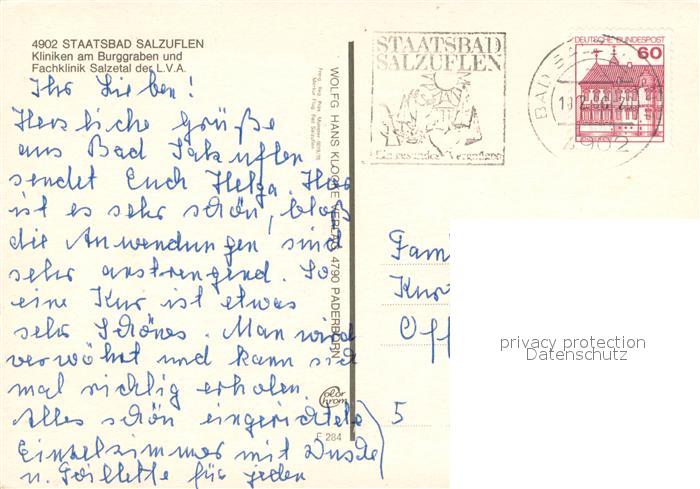 4902 STAATSBAD SALZUFLEN
Kliniken am Burggraben und
Fachklinik Salzetal der L.V.A.
Ihr Lieben!
Herzliche Grüße
aus Bad Salzuflen
sendet Euch Helga. Hier
ist es sehr schön, bloß
die Anwendungen sind
sehr anstrengend. So
eine Kur ist etwas
sehr Schönes. Man wird
verwöhnt und kann sich
mal richtig erholen.
Alles schön eingerichtet
Einzelzimmer mit Dusche
u. Toillette für jeden
WOLFG. HANS KLOCKE VERLAG 4790 PADERBORN
color
chrom
F 284
STAATSBAD
SALZUFLEN
Ein gesundes Vergnügen
BAD SA
4902
DEUTSCHE BUNDESPOST
60
Fam
Kur
Off
5
privacy protection
Datenschutz